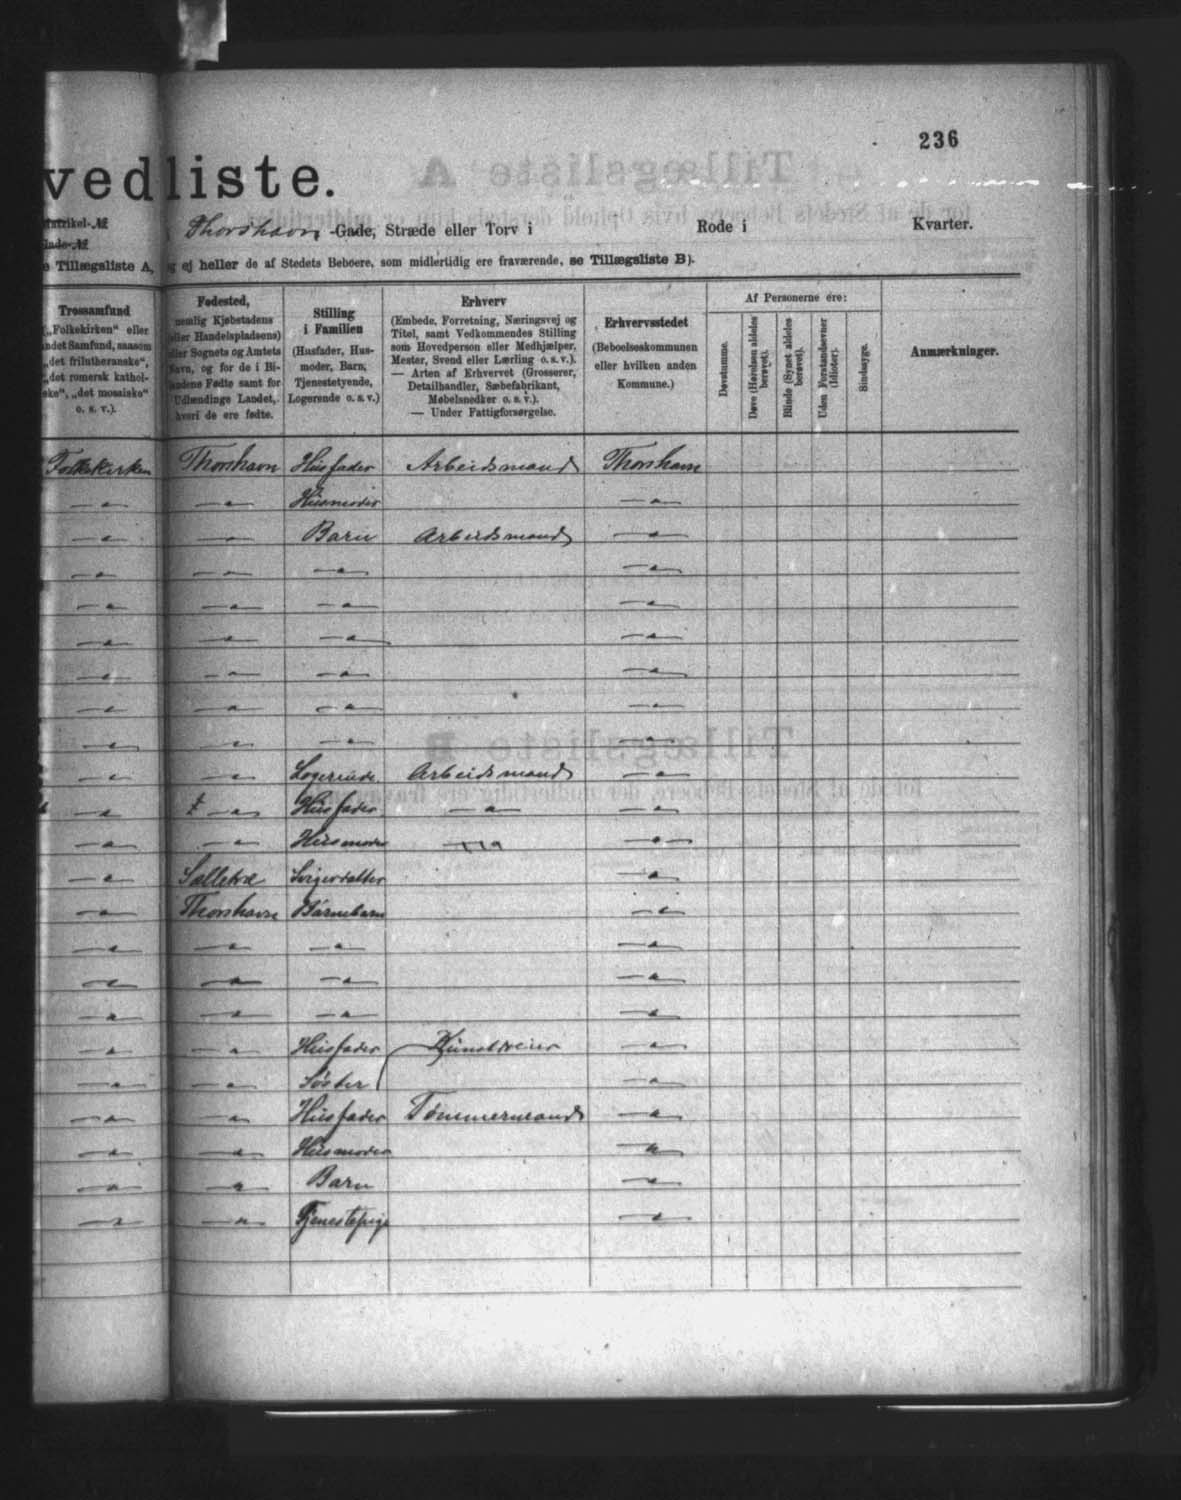 236
vedliste.
Matrikel-№
Gade-№
Thorshavn -Gade, Stræde eller Torv i Rode i Kvarter.
e Tillægsliste A, og ej heller de af Stedets Beboere, som midlertidig ere fraværende, se Tillægsliste B).
Trossamfund
(„Folkekirken“ eller
andet Samfund, saasom
„det frilutheranske“,
„det romersk kathol-
ske“, „det mosaiske“
o. s. v.).
Fødested,
nemlig Kjøbstadens
(eller Handelspladsens)
eller Sognets og Amtets
Navn, og for de i Bi-
landene Fødte samt for
Udlændinge Landet,
hvori de ere fødte.
Stilling
i Familien
(Husfader, Hus-
moder, Barn,
Tjenestetyende,
Logerende o. s. v.)
Erhverv
(Embede, Forretning, Næringsvej og
Titel, samt Vedkommendes Stilling
som Hovedperson eller Medhjælper,
Mester, Svend eller Lærling o. s. v.).
— Arten af Erhvervet (Grosserer,
Detailhandler, Sæbefabrikant,
Møbelsnedker o. s. v.).
— Under Fattigforsørgelse.
Erhvervsstedet
(Beboelseskommunen
eller hvilken anden
Kommune.)
Af Personerne ere:
Døvstumme.
Døve (Hørelsen aldeles
berøvet).
Blinde (Synet aldeles
berøvet).
Uden Forstandsevner
(Idioter).
Sindssyge.
Anmærkninger.
Folkekirken Thorshavn Husfader Arbeidsmand Thorshavn
— " — — " — Husmoder — " —
— " — — " — Barn Arbeidsmand — " —
— " — — " — — " — — " —
— " — — " — — " — — " —
— " — — " — — " — — " —
— " — — " — — " — — " —
— " — — " — — " — — " —
— " — — " — — " — — " —
— " — — " — Logerende Arbeidsmand — " —
— " — — " — Husfader — " — — " —
— " — — " — Husmoder — " —
— " — Svigerdatter — " —
— " — Thorshavn Barnebarn — " —
— " — — " — — " — — " —
— " — — " — — " — — " —
— " — — " — — " — — " —
— " — — " — Husfader — " —
— " — — " — Søster — " —
— " — — " — Husfader Tømmermand — " —
— " — — " — Husmoder — " —
— " — — " — Barn — " —
— " — — " — Tjenestepige — " —